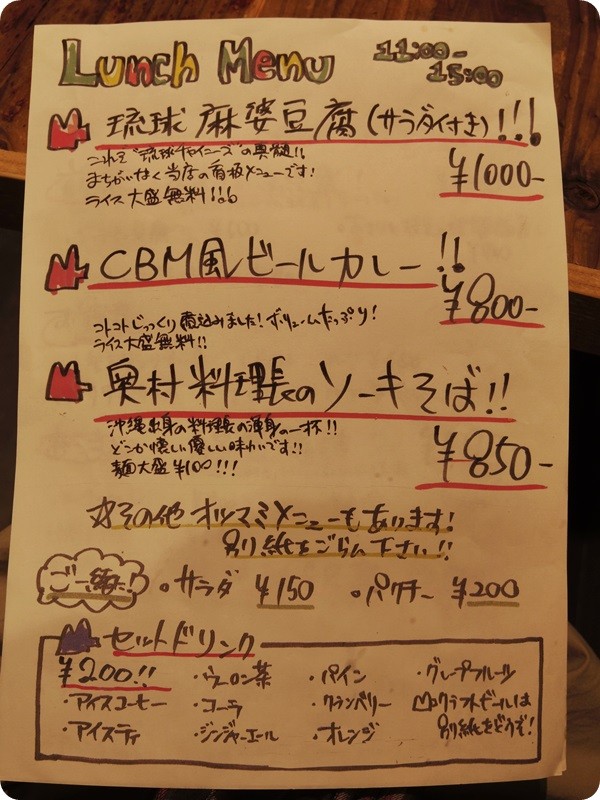 Lunch Menu 11:00-
15:00
琉球麻婆豆腐(サラダ付き)!!!
これぞ"琉球チャイニーズ"の真髄!!
まちがいなく当店の看板メニューです!
ライス大盛無料!!!
¥1000-
CBM風ビールカレー!!
¥800-
コトコトじっくり煮込みました!ボリュームたっぷり!
ライス大盛無料!!
奥村料理長のソーキそば!!
沖縄出身の料理長の渾身の一杯!!
どこか懐しい優しい味わいです!!
麺大盛¥100!!!
¥850-
その他オツマミメニューもあります!
別紙をごらん下さい!!
ご一緒に!
・サラダ ¥150 ・パクチー ¥200
セットドリンク
¥200!! ・ウーロン茶 ・パイン ・グレープフルーツ
・アイスコーヒー ・コーラ ・クランベリー クラフトビールは
・アイスティ ・ジンジャーエール ・オレンジ 別紙をどうぞ!